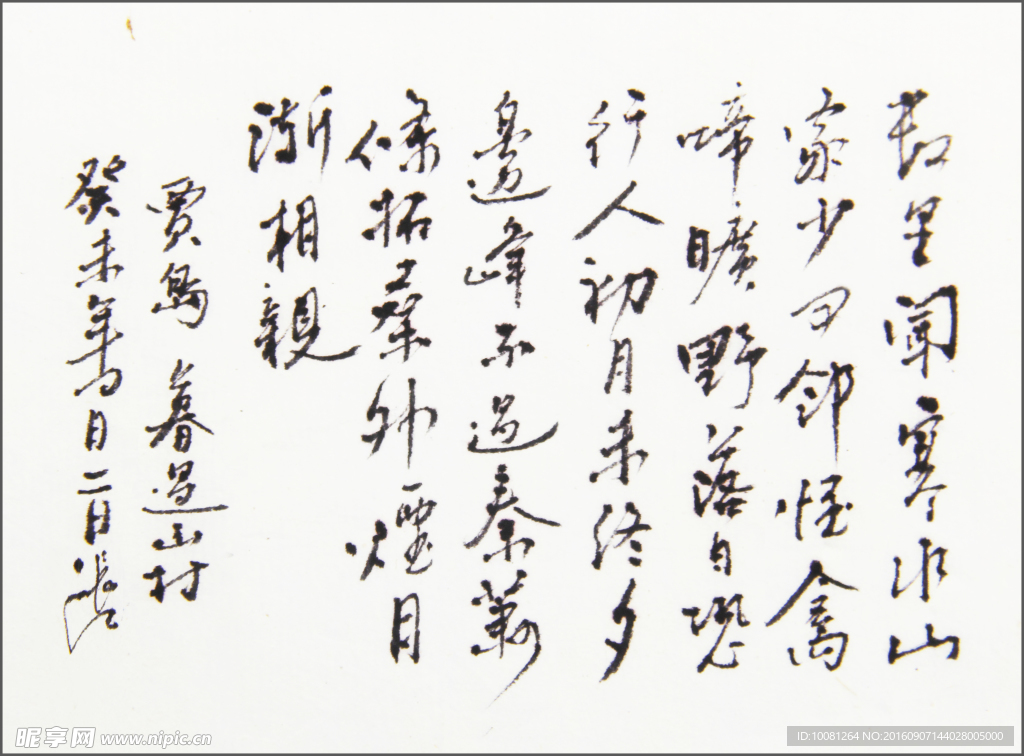 数里聞寒水山
家少四鄰怪禽
啼曠野落日恐
行人初月未終夕
邊峰不過秦蕭
條拓桑外煙月
漸相親
賈島 暮過山村
癸未年月二日
昵享网 www.nipic.cn
ID:10081264 NO:20160907144028005000